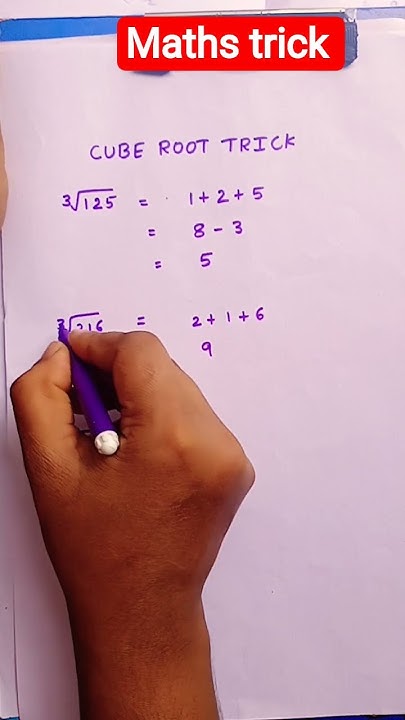 Maths trick
CUBE ROOT TRICK
∛125 = 1+2+5
= 8-3
= 5
∛216 = 2+1+6
9